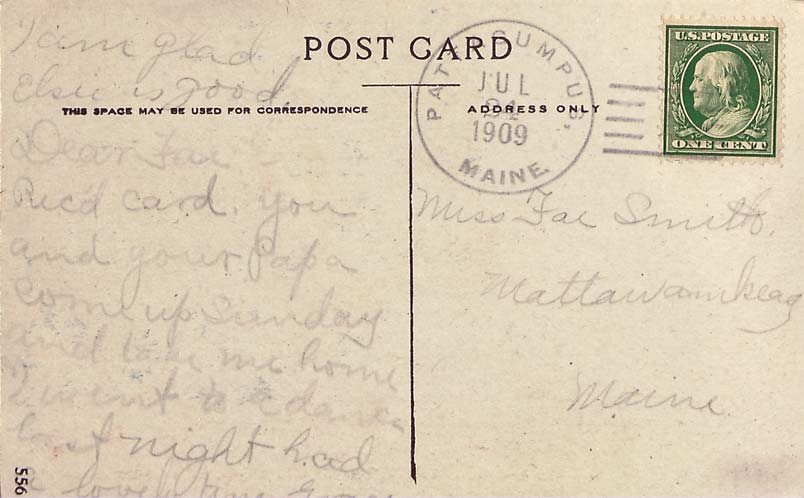 I am glad
Elsie is good.
POST CARD
THIS SPACE MAY BE USED FOR CORRESPONDENCE
ADDRESS ONLY
PATTAGUMPUS,
JUL
24
1909
MAINE
U.S. POSTAGE
ONE CENT
Dear Fae
Rec'd card. you
and your Papa
come up Sunday
and take me home
I went to a dance
last night had
a lovely time
Miss Fae Smith.
Mattawamkeag
Maine
556